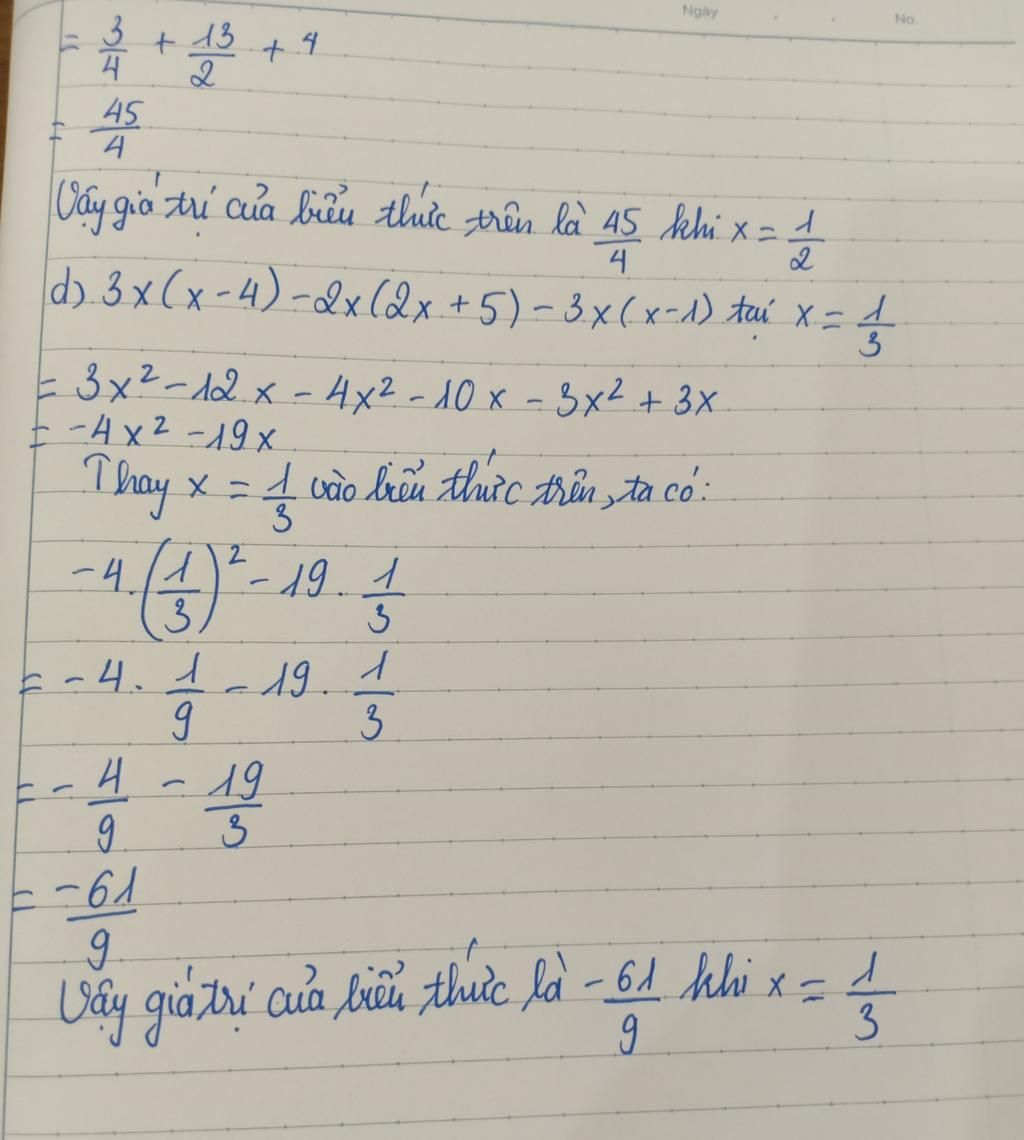 Ngày . . No.
= 3/4 + 13/2 + 4
= 45/4
Vậy giá trị của biểu thức trên là 45/4 khi x = 1/2
d) 3x(x-4) - 2x(2x+5) - 3x(x-1) tại x = 1/3
= 3x² - 12x - 4x² - 10x - 3x² + 3x
= -4x² - 19x
Thay x = 1/3 vào biểu thức trên, ta có:
-4.(1/3)² - 19. 1/3
= -4. 1/9 - 19. 1/3
= - 4/9 - 19/3
= -61/9
Vậy giá trị của biểu thức là -61/9 khi x = 1/3